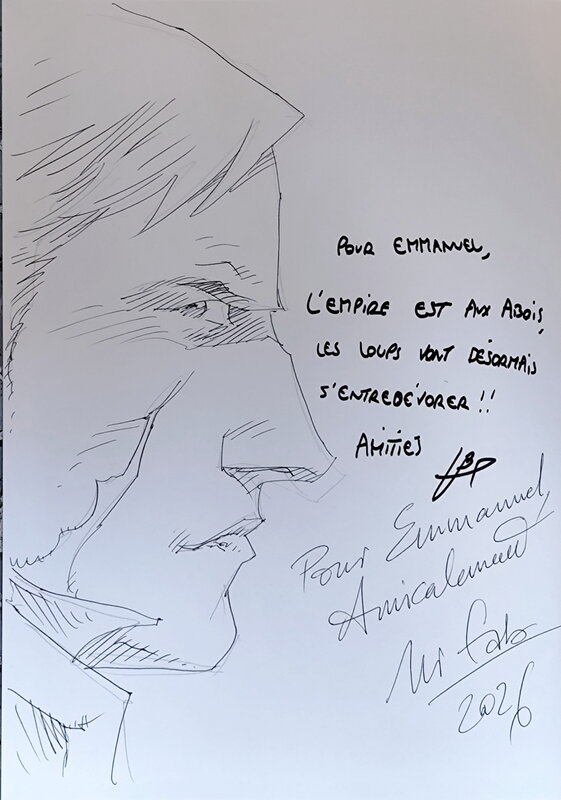 POUR EMMANUEL,
L'EMPIRE EST AUX ABOIS,
LES LOUPS VONT DÉSORMAIS
S'ENTREDÉVORER !!
AMITIÉS
Pour Emmanuel,
Amicalement
2026